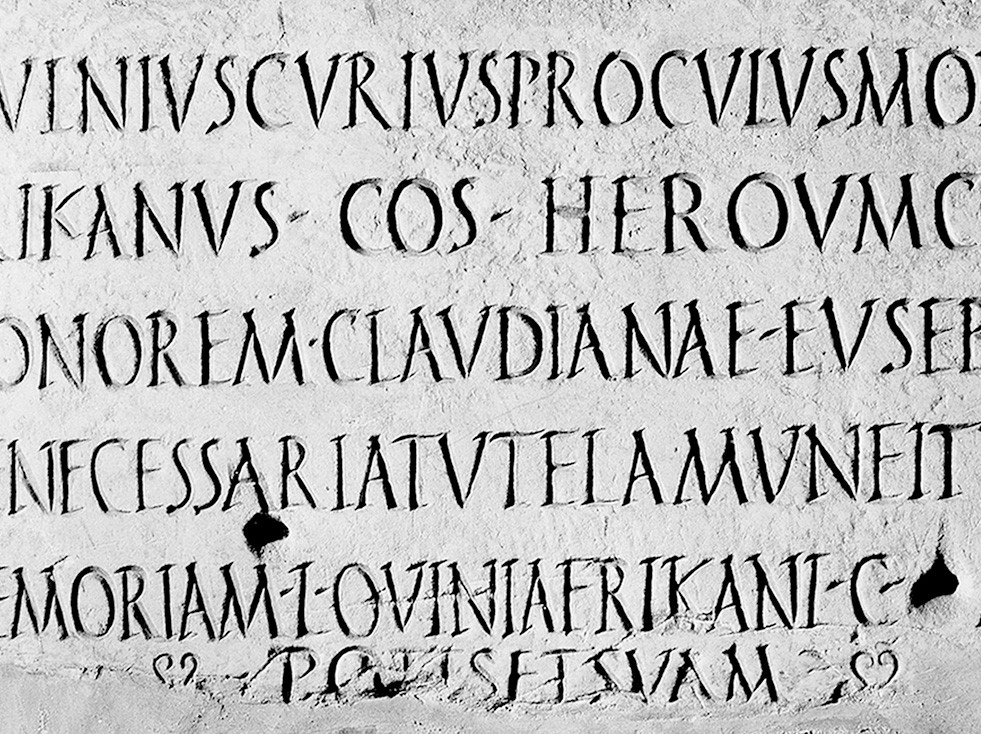 VINIVSCVRIVSPROCVLVSMO
RIKANVS· COS· HEROVMC
ONOREM·CLAVDIANAE·EVSEB
NECESSARIATVTELAMVNEIT
EMORIAM·I·OVINIAFRIKANI·C·
SETSVAM